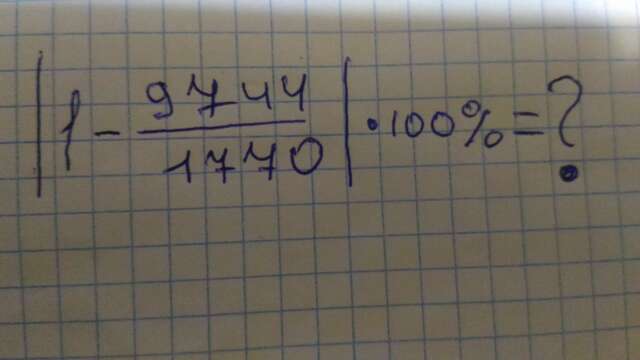 |1 - 9744/1770| · 100% = ?